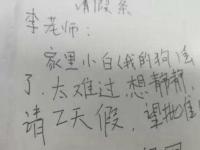 请假条
李老师：
家里小白(我的狗)丢
了，太难过，想静静，
请2天假，望批准！